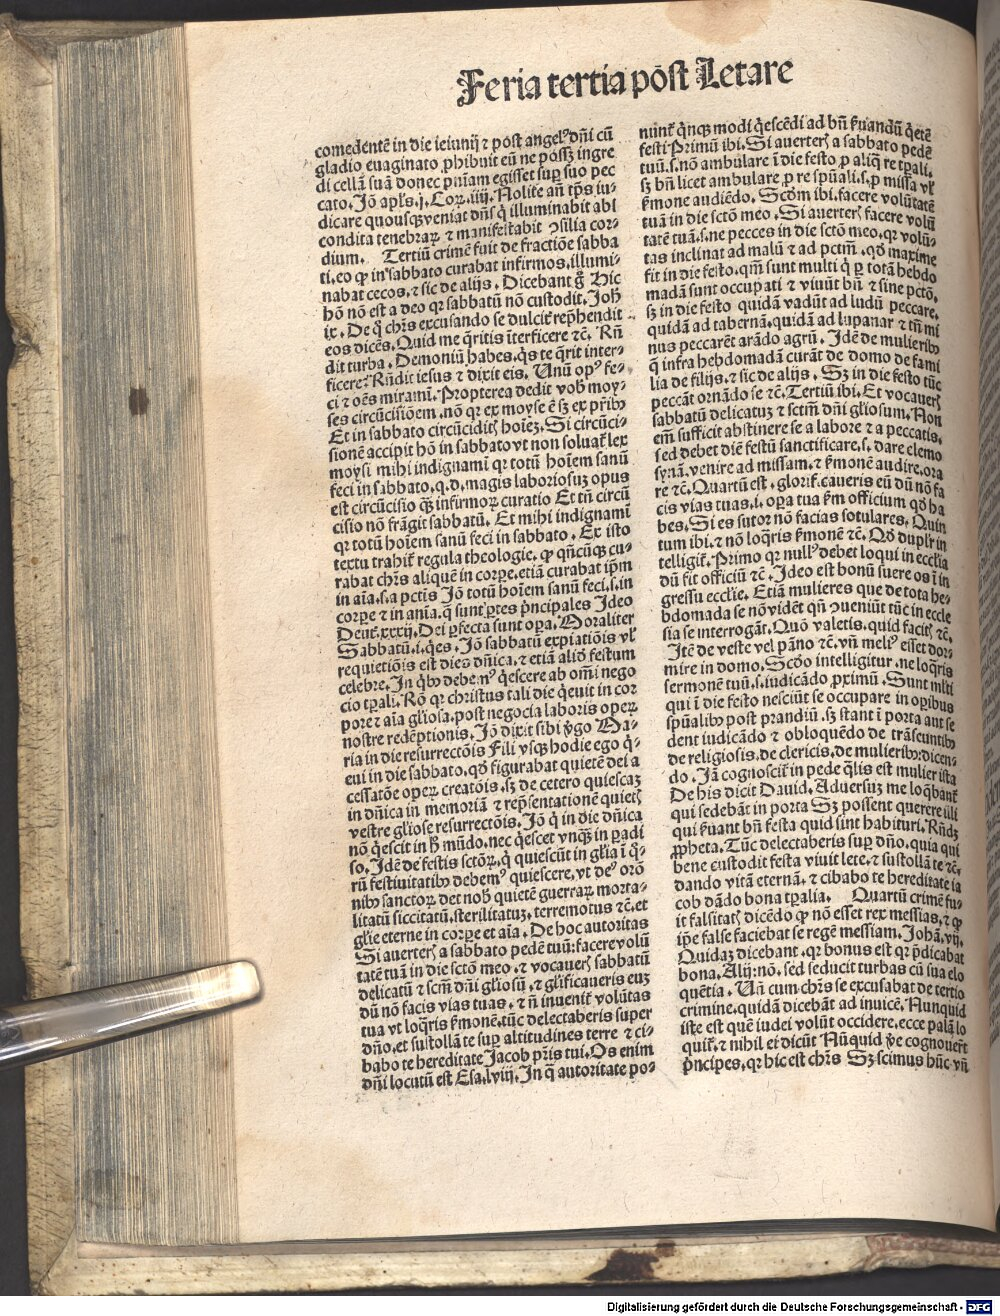 Feria tertia pōst Letare
comedentē in die ieiunij ⁊ post angelꝰ dn̄i cū
gladio euaginato ꝓhibuit eū ne possꝫ ingre
di cellā suā donec pn̄iam egisset suꝑ suo pec
cato. Jō apl's .j. Coꝝ. iiij. Nolite an̄ tp̄s iu-
dicare quousqꝫ veniat dn̄s q̇ illuminabit abs
condita tenebraꝝ ⁊ manifestabit ↄsilia cor-
dium. Tertiū crimē fuit de fractiōe sabba
ti, eo ꝙ in sabbato curabat infirmos, illumi-
nabat cecos, ⁊ sic de alijs. Dicebant g̊ Hic
hō nō est a deo qꝛ sabbatū nō custodit. Joh̄
ix. De q̊ chr̄s excusando se dulcit̛ rep̄hendit
eos dicēs. Quid me q̄ritis īterficere ⁊c̄. Rn̄
dit turba. Demoniū habes, q̇s te q̄rit inter-
ficere? Rn̄dit iesus ⁊ dixit eis. Unū opꝰ fe-
ci ⁊ oēs miramī. Propterea dedit vob̄ moy-
ses circūcisiōem, nō qꝛ ex moyse ē sꝫ ex pr̄ibꝰ
Et in sabbato circūciditꝭ hoīeꝫ. Si circūci-
sionē accipit hō in sabbato vt non soluat̛ lex
moysi mihi indignamī qꝛ totū hoīem sanū
feci in sabbato, q.d. magis laboriosuꝫ opus
est circūcisio qꝫ̄ infirmoꝝ curatio Et tn̄ circū
cisio nō frāgit sabbatū. Et mihi indignamī
qꝛ totū hoīem sanū feci in sabbato. Ex isto
textu trahit̛ regula theologie, ꝙ qn̄cūqꝫ cu-
rabat chr̄s aliquē in corꝑe, etiā curabat ip̄m
in aīa, s. a pctīs Jō totū hoīem sanū feci, s. in
corꝑe ⁊ in anīa, q̄ sunt ꝑtes p̄ncipales Jdeo
Deut̄. xxxij. Dei ꝑfecta sunt oꝑa. Moraliter
Sabbatū .i. q̇es. Jō sabbatū expiatiōis vl̛
requietiōis est dies dn̄ica, ⁊ etiā aliō festum
celebre. In q̊ꝫ debemꝰ q̇escere ab om̄i nego
cio tꝑali. Rō qꝛ christus tali die q̇euit in cor
pore ⁊ aīa gl̛iosa, post negocia laboris opeꝝ
nostre redēptionis. Jō dixit sibi ṽgo Ma-
ria in die resurrectōis Fili vsqꝫ hodie ego q̇-
eui in die sabbato, qd̄ figurabat quietē dei a
cessatōe opeꝝ creatōis, sꝫ de cetero quiescaꝫ
in dn̄ica in memoriā ⁊ rep̄sentationē quietꝭ
vestre gl̛iose resurrectōis. Jō q̇ in die dn̄ica
nō q̇escit in h̄ mūdo, nec q̇escet vnqꝫ̄ in padi
so. Jdē de festis sctōꝝ, q̇ quiescūt in gl̛ia ī q̊-
rū festiuitatibꝰ debemꝰ quiescere, vt deꝰ orō
nibꝰ sanctoꝝ det nob̄ quietē guerraꝝ morta-
litatū siccitatū, sterilitatuꝫ, terremotus ⁊c̄. et
gl̛ie eterne in corꝑe et aīa. De hoc autoritas
Si auertertꝭ a sabbato pedē tuū: facere volū
tatē tuā in die sctō meo, ⁊ vocauerꝭ sabbatū
delicatū ⁊ scm̄ dn̄i gl̛iosū, ⁊ gl̛ificaueris euꝫ
dū nō facis vias tuas, ⁊ n̄ inuenit̛ volūtas
tua vt loq̄ris ẜmonē, tūc delectaberis super
dn̄o, et sustollā te suꝑ altitudines terre ⁊ ci-
babo te hereditate Jacob pr̄is tui. Os enim
dn̄i locutū est Esa. lviij. In q̄ autoritate po-
nunt̛ q̇nqꝫ modi q̇escēdi ad bn̄ ẜuandū q̇etē
festi Primū ibi. Si auerterꝭ a sabbato pedē
tuū, s. nō ambulare ī die festo ꝓ aliq̄ re tꝑali,
sꝫ bn̄ licet ambulare ꝓ re sp̄uāli, s. ꝓ missa vl̛
ẜmone audiēdo. Scd̄m ibi, facere volūtatē
tuā in die sctō meo. Si auerterꝭ facere volū
tatē tuā, s. ne pecces in die sctō meo, qꝛ volū-
tas inclinat ad malū ⁊ ad pctm̄, qd̄ maxime
fit in die festo, qm̄ sunt multi q̇ ꝑ totā hebdo
madā sunt occupati ⁊ viuūt bn̄ ⁊ sine pctō,
sꝫ in die festo quidā vadūt ad ludū peccare,
quidā ad tabernā, quidā ad lupanar ⁊ tn̄ mi
nus peccarēt arādo agrū. Jdē de mulieribꝰ
q̄ infra hebdomadā curāt de domo de fami
lia de filijs, ⁊ sic de alijs. Sꝫ in die festo tūc
peccāt ornādo se ⁊c̄. Tertiū ibi. Et vocauerꝭ
sabbatū delicatuꝫ ⁊ sctm̄ dn̄i gl̛iosum. Non
em̄ sufficit abstinere se a labore ⁊ a peccatis,
sed debet diē festū sanctificare, s. dare elemo
synā, venire ad missam, ⁊ ẜmonē audire, ora
re ⁊c̄. Quartū est, glorif̛caueris eū dū nō fa
cis vias tuas, i. oꝑa tua ẜm officium qd̄ ha
bes. Si es sutor nō facias sotulares. Quin
tum ibi, ⁊ nō loq̄ris ẜmonē ⁊c̄. Qd̄ dupl̛r in
telligit̛. Primo qꝛ nullꝰ debet loqui in eccl̛ia
dū fit officiū ⁊c̄. Jdeo est bonū suere os ī in
gressu eccl̛ie. Etiā mulieres que de tota he-
bdomada se nō vidēt qn̄ ↄueniūt tūc in eccle
sia se interrogāt. Quō valetis, quid facitꝭ ⁊c̄.
Jtē de veste vel pāno ⁊c̄. vn̄ meliꝰ esset dor-
mire in domo. Scd̄o intelligitur, ne loq̄ris
sermonē tuū, s. iudicādo ꝓximū. Sunt ml̛ti
qui ī die festo nesciūt se occupare in oꝑibus
sp̄ualibꝰ post prandiū, sꝫ stant ī porta aut se
dent iudicādo ⁊ obloquēdo de trāseuntibꝰ
de religiosis, de clericis, de mulieribꝰ: dicen-
do. Jā cognoscit̛ in pede q̄lis est mulier ista
De his dicit Dauid. Aduersuꝫ me loq̄bant̛
qui sedebāt in porta Sꝫ possent querere illi
qui ẜuant bn̄ festa quid sint habituri. Rn̄dꝫ
ꝓpheta. Tūc delectaberis suꝑ dn̄o, quia qui
bene custodit festa viuit lete, ⁊ sustollā te ⁊c̄.
dando vitā eternā, ⁊ cibabo te hereditate ia
cob dādo bona tꝑalia. Quartū crimē fu-
it falsitatꝭ dicēdo ꝙ nō esset rex messias, ⁊ ꝙ
ip̄e false faciebat se regē messiam. Johā. vij.
Quidaꝫ dicebant, qꝛ bonus est qꝛ p̄dicabat
bona. Alij: nō, sed seducit turbas cū sua elo
quētia. Un̄ cum chr̄s se excusabat de tertio
crimine, quidā dicebāt ad inuicē. Nunquid
iste est quē iudei volūt occidere, ecce palā lo
quit̛, ⁊ nihil ei dicūt Nūquid ṽe cognouer̄t
p̄ncipes, qꝛ hic est chr̄s Sꝫ scimus hūc vn̄
Digitalisierung gefördert durch die Deutsche Forschungsgemeinschaft - DFG